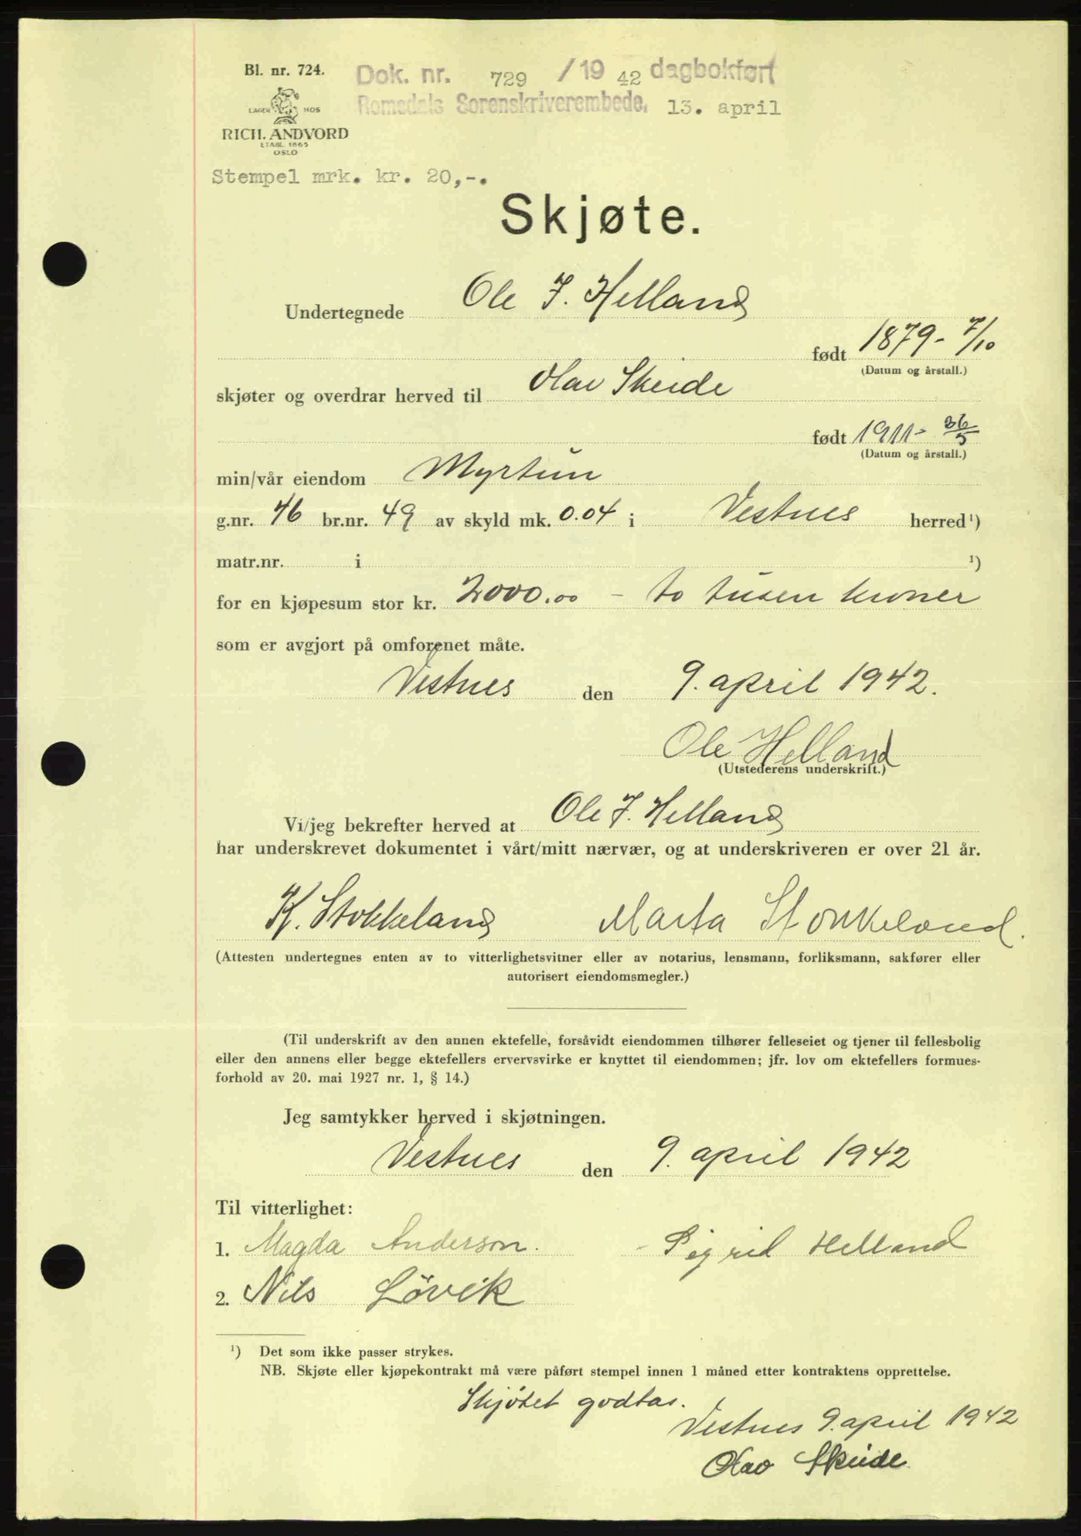 Bl. nr. 724.
Dok. nr. 729 /19 42 dagbokført
LAGER HOS
Romsdals Sorenskriverembede, 13. april
RICH. ANDVORD
ETABL. 1865
OSLO
Stempel mrk. kr. 20,-.
Skjøte.
Undertegnede Ole J. Helland
født 1879- 7/10
(Datum og årstall.)
skjøter og overdrar herved til Olav Skeide
født 1911- 26/5
(Datum og årstall.)
min/vår eiendom Myrtun
g.nr. 46 br.nr. 49 av skyld mk. 0.04 i Vestnes herred¹)
matr.nr. i ¹)
for en kjøpesum stor kr. 2000.00 - to tusen kroner
som er avgjort på omforenet måte.
Vestnes den 9. april 1942.
Ole Helland
(Utstederens underskrift.)
Vi/jeg bekrefter herved at Ole J. Helland
har underskrevet dokumentet i vårt/mitt nærvær, og at underskriveren er over 21 år.
K. Stokkeland Marta Stokkeland.
(Attesten undertegnes enten av to vitterlighetsvitner eller av notarius, lensmann, forliksmann, sakfører eller
autorisert eiendomsmegler.)
(Til underskrift av den annen ektefelle, forsåvidt eiendommen tilhører felleseiet og tjener til fellesbolig
eller den annens eller begge ektefellers ervervsvirke er knyttet til eiendommen; jfr. lov om ektefellers formues-
forhold av 20. mai 1927 nr. 1, § 14.)
Jeg samtykker herved i skjøtningen.
Vestnes den 9. april 1942
Til vitterlighet:
1. Magda Anderson. - Sigrid Helland
2. Nils Løvik
¹) Det som ikke passer strykes.
NB. Skjøte eller kjøpekontrakt må være påført stempel innen 1 måned etter kontraktens opprettelse.
Skjøtet godtas.
Vestnes 9. april 1942
Olav Skeide